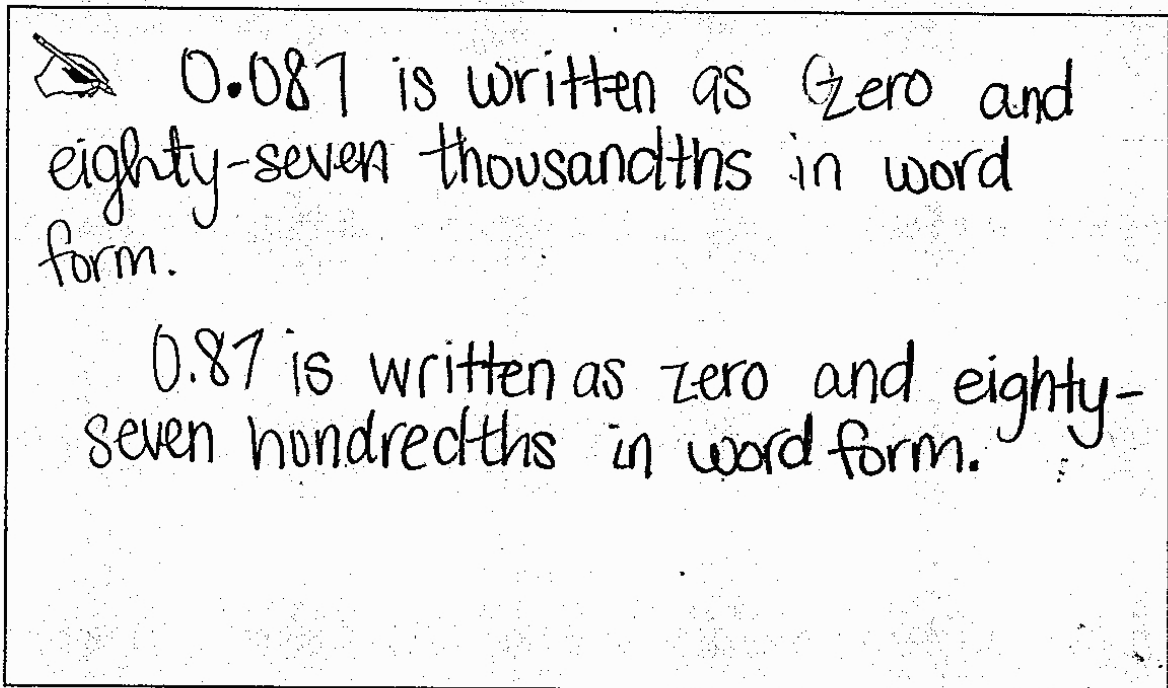 0.087 is written as zero and
eighty-seven thousandths in word
form.
0.87 is written as zero and eighty-
seven hundredths in word form.